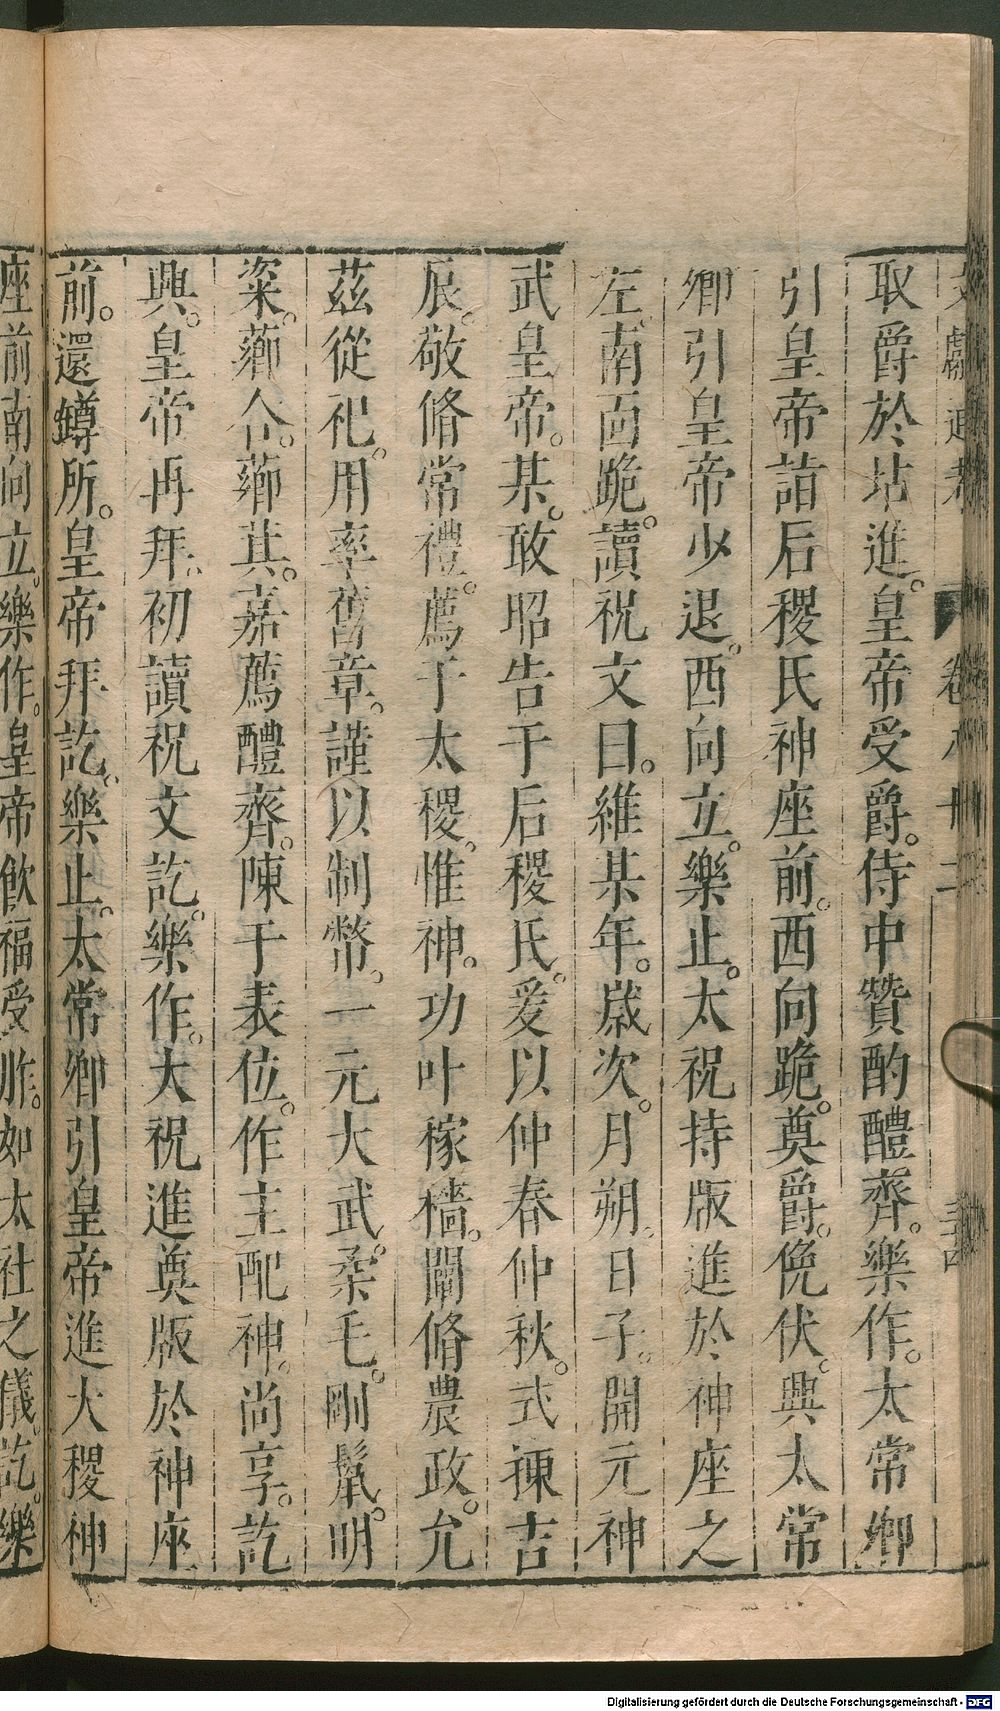 文獻通考 卷八十二 三十四
取爵於坫進。皇帝受爵。侍中贊酌醴齊。樂作。太常卿
引皇帝詣后稷氏神座前。西向跪。奠爵。俛伏。興太常
卿引皇帝少退。西向立。樂止。太祝持版進於神座之
左。南面跪。讀祝文曰。維某年。歲次。月朔。日子。開元神
武皇帝。某。敢昭告于后稷氏。爰以仲春仲秋。式揀吉
辰。敬脩常禮。薦于太稷。惟神。功叶稼穡。闡脩農政。允
茲從祀。用率舊章。謹以制幣。一元大武。柔毛。剛鬣。明
粢。薌合。薌萁。嘉薦醴齊。陳于表位。作主配神。尚享。訖
興。皇帝再拜。初讀祝文訖。樂作。大祝進奠版於神座
前。還罇所。皇帝拜訖。樂止。太常卿引皇帝進大稷神
座前南向立。樂作。皇帝飲福受胙。如太社之儀。訖。樂
Digitalisierung gefördert durch die Deutsche Forschungsgemeinschaft - DFG